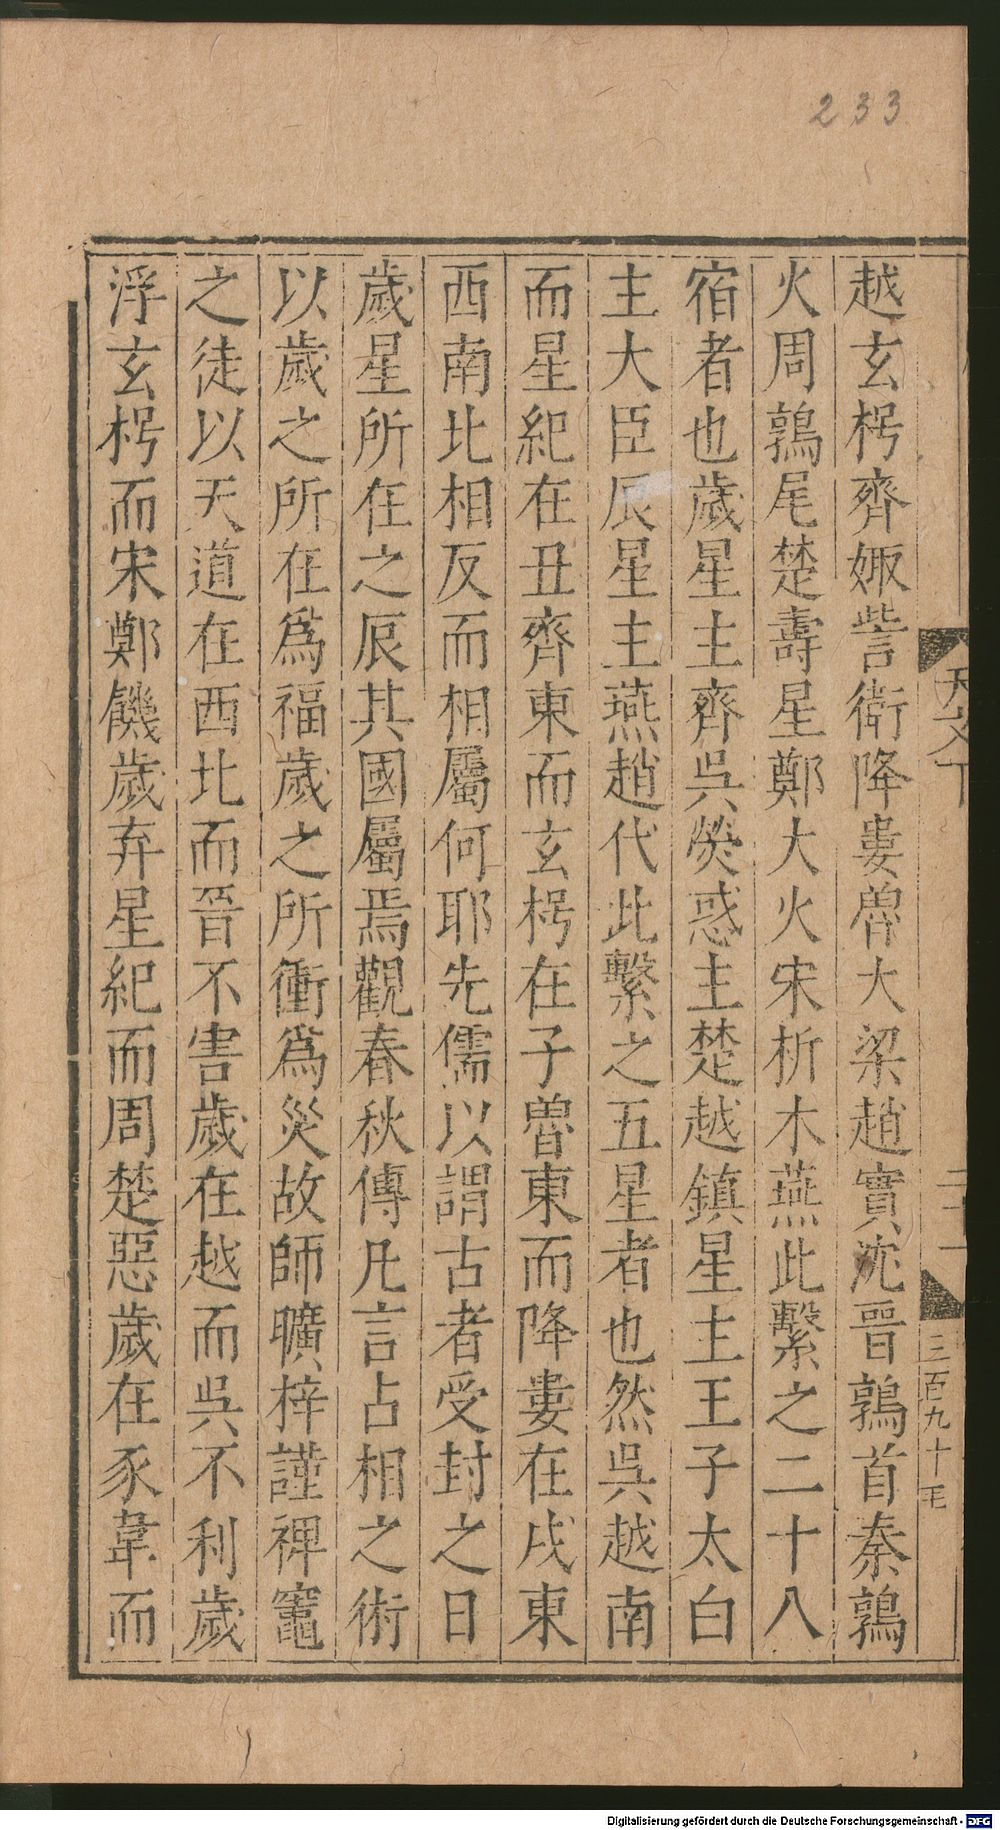 233
天文下
二十一
三百九十毛
越玄枵齊娵訾衛降婁魯大梁趙實沈晉鶉首秦鶉
火周鶉尾楚壽星鄭大火宋析木燕此繫之二十八
宿者也歲星主齊吳熒惑主楚越鎮星主王子太白
主大臣辰星主燕趙代此繫之五星者也然吳越南
而星紀在丑齊東而玄枵在子魯東而降婁在戌東
西南北相反而相屬何耶先儒以謂古者受封之日
歲星所在之辰其國屬焉觀春秋傳凡言占相之術
以歲之所在爲福歲之所衝爲災故師曠梓謹裨竈
之徒以天道在西北而晉不害歲在越而吳不利歲
浮玄枵而宋鄭饑歲弃星紀而周楚惡歲在豕韋而
Digitalisierung gefördert durch die Deutsche Forschungsgemeinschaft - DFG